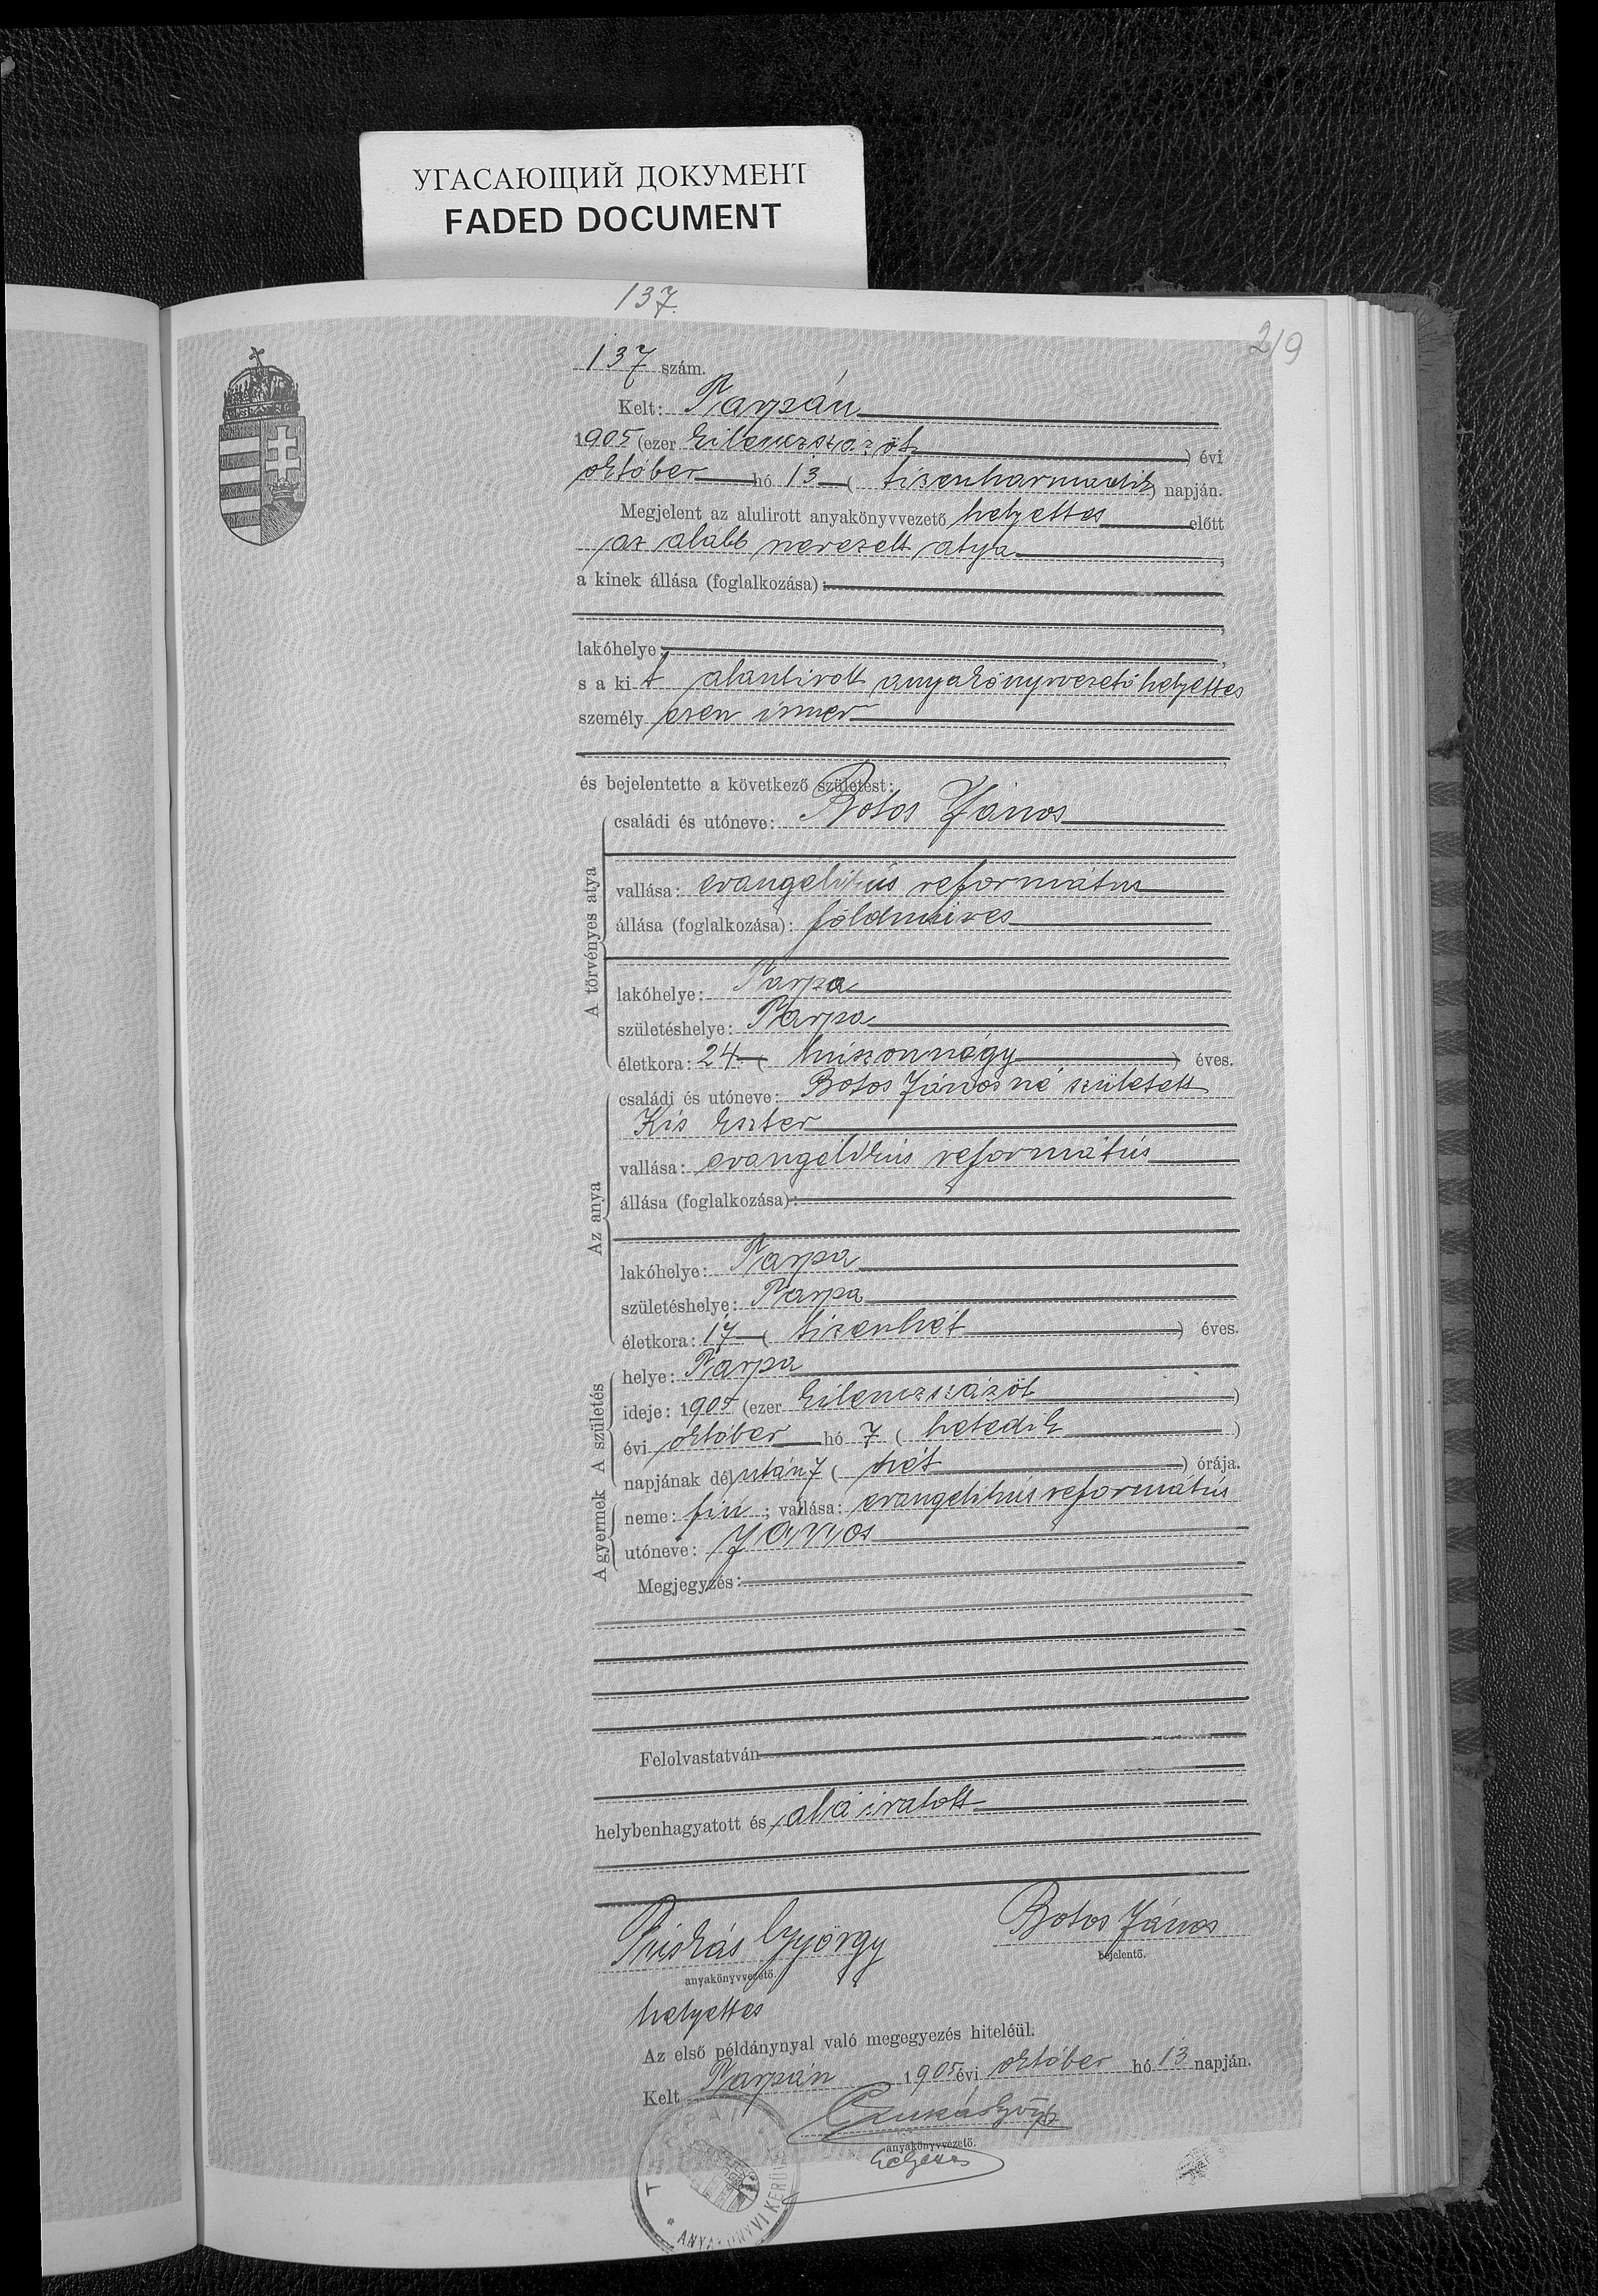 УГАСАЮЩИЙ ДОКУМЕНТ
FADED DOCUMENT
137.
219
137 szám.
Kelt: Tarpán
1905 (ezer kilenczszázöt ) évi
október hó 13 ( tizenharmadik ) napján.
Megjelent az alulirott anyakönyvvezető helyettes előtt
az alább nevezett atya ,
a kinek állása (foglalkozása):
lakóhelye: ,
s a kit alantirott anyakönyvvezető helyettes
személyesen ismer
és bejelentette a következő születést:
A törvényes atya
családi és utóneve: Botos János
vallása: evangelikus református
állása (foglalkozása): földmüves
lakóhelye: Tarpa
születéshelye: Tarpa
életkora: 24 ( huszonnégy ) éves.
Az anya
családi és utóneve: Botos Jánosné született
Kis Eszter
vallása: evangelikus református
állása (foglalkozása):
lakóhelye: Tarpa
születéshelye: Tarpa
életkora: 17 ( tizenhét ) éves.
A születés
helye: Tarpa
ideje: 1905 (ezer kilenczszázöt )
évi október hó 7 ( hetedik )
napjának délután 7 ( hét ) órája.
A gyermek
neme: fiu ; vallása: evangelikus református
utóneve: János
Megjegyzés:
Felolvastatván
helybenhagyatott és aláiratott
György
anyakönyvvezető.
helyettes
Botos János
bejelentő.
Az első példánynyal való megegyezés hiteléül.
Kelt Tarpán 1905 évi október hó 13 napján.
anyakönyvvezető.
helyettes
ANYAKÖNYVI KERÜL